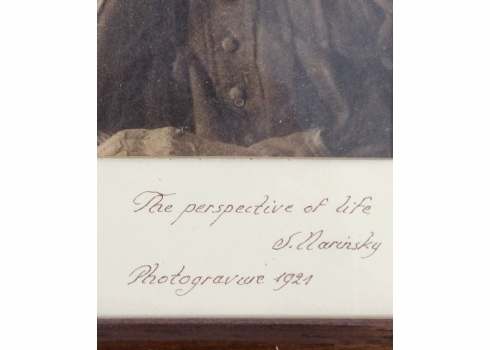 The perspective of life
S. Narinsky
Photogravure 1921